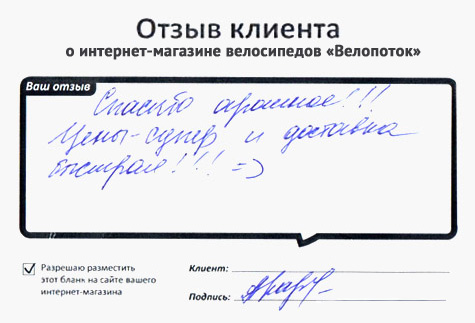 Отзыв клиента
о интернет-магазине велосипедов «Велопоток»
Ваш отзыв
Спасибо огромное!!!
Цены-супер и доставка
быстрая!!! =)
Разрешаю разместить
этот бланк на сайте вашего
интернет-магазина
Клиент:
Подпись: